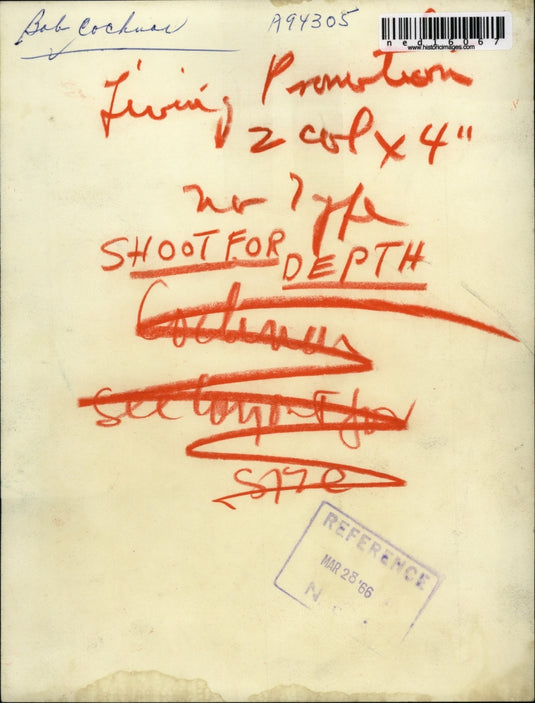 Bob Cochnar
A94305
ned16067
www.historicimages.com
Living Promotion
2 col x 4"
no Type
SHOOT FOR
DEPTH
Cochnar
See layout for
size
REFERENCE
MAR 28 '66
N